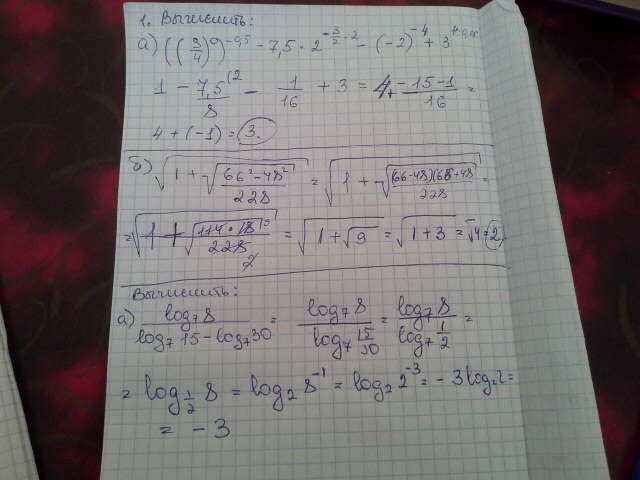 1. Вычислить:
а) ((3/4)^0)^-0,5 - 7,5 · 2^(-3/2 · 2) - (-2)^-4 + 3
1 - 7,5^(2/8 - 1/16 + 3 = 4 + (-15-1)/16 =
4 + (-1) = 3.
б) √(1 + √((66²-48²)/228)) = √(1 + √((66-48)(66+48)/228)) =
= √(1 + √(114 · 18/228)) = √(1 + √9) = √(1+3) = √4 = 2
Вычислить:
а) log₇8/(log₇15 - log₇30) = log₇8/log₇(15/30) = log₇8/log₇(1/2) =
= log_(1/2) 8 = log₂ 8^-1 = log₂ 2^-3 = - 3 log₂ 2 =
= - 3